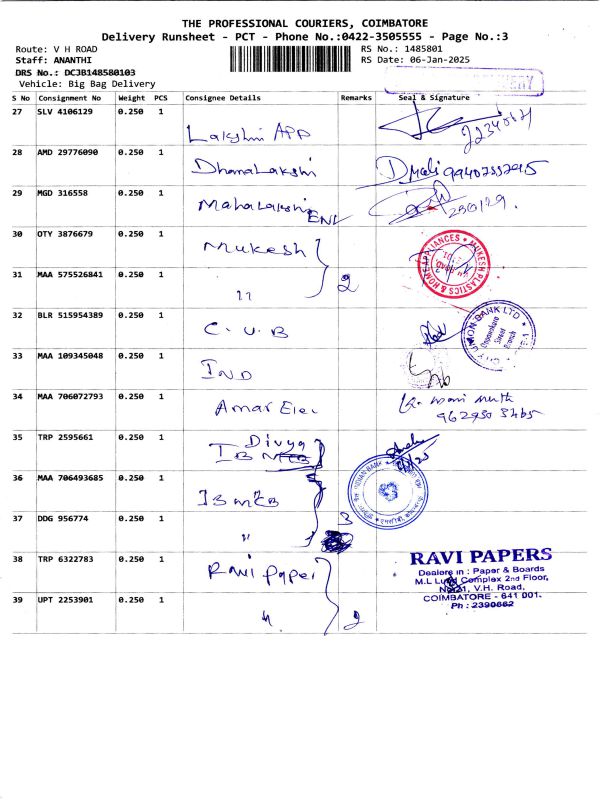 THE PROFESSIONAL COURIERS, COIMBATORE
Delivery Runsheet - PCT - Phone No.:0422-3505555 - Page No.:3
Route: V H ROAD
RS No.: 1485801
Staff: ANANTHI
RS Date: 06-Jan-2025
DRS No.: DCJB148580103
Vehicle: Big Bag Delivery
S No Consignment No Weight PCS Consignee Details Remarks Seal & Signature
27 SLV 4106129 0.250 1 Lakshmi APP
28 AMD 29776090 0.250 1 DhanaLakshmi
29 MGD 316558 0.250 1 MahaLakshmi ENL
30 OTY 3876679 0.250 1 Mukesh
MUKESH PLASTICS & HOME APPLIANCES
31 MAA 575526841 0.250 1 " 2
32 BLR 515954389 0.250 1 C.U.B
CITY UNION BANK LTD
Oppanakara Street Branch
33 MAA 109345048 0.250 1 IND
34 MAA 706072793 0.250 1 Amar Elec
35 TRP 2595661 0.250 1 Divya
36 MAA 706493685 0.250 1 IB MCB
INDIAN BANK
37 DDG 956774 0.250 1 " 3
38 TRP 6322783 0.250 1 Ravi Paper
RAVI PAPERS
Dealers in : Paper & Boards
M.L Complex 2nd Floor,
V.H. Road,
COIMBATORE - 641 001.
Ph : 2390662
39 UPT 2253901 0.250 1 " 2